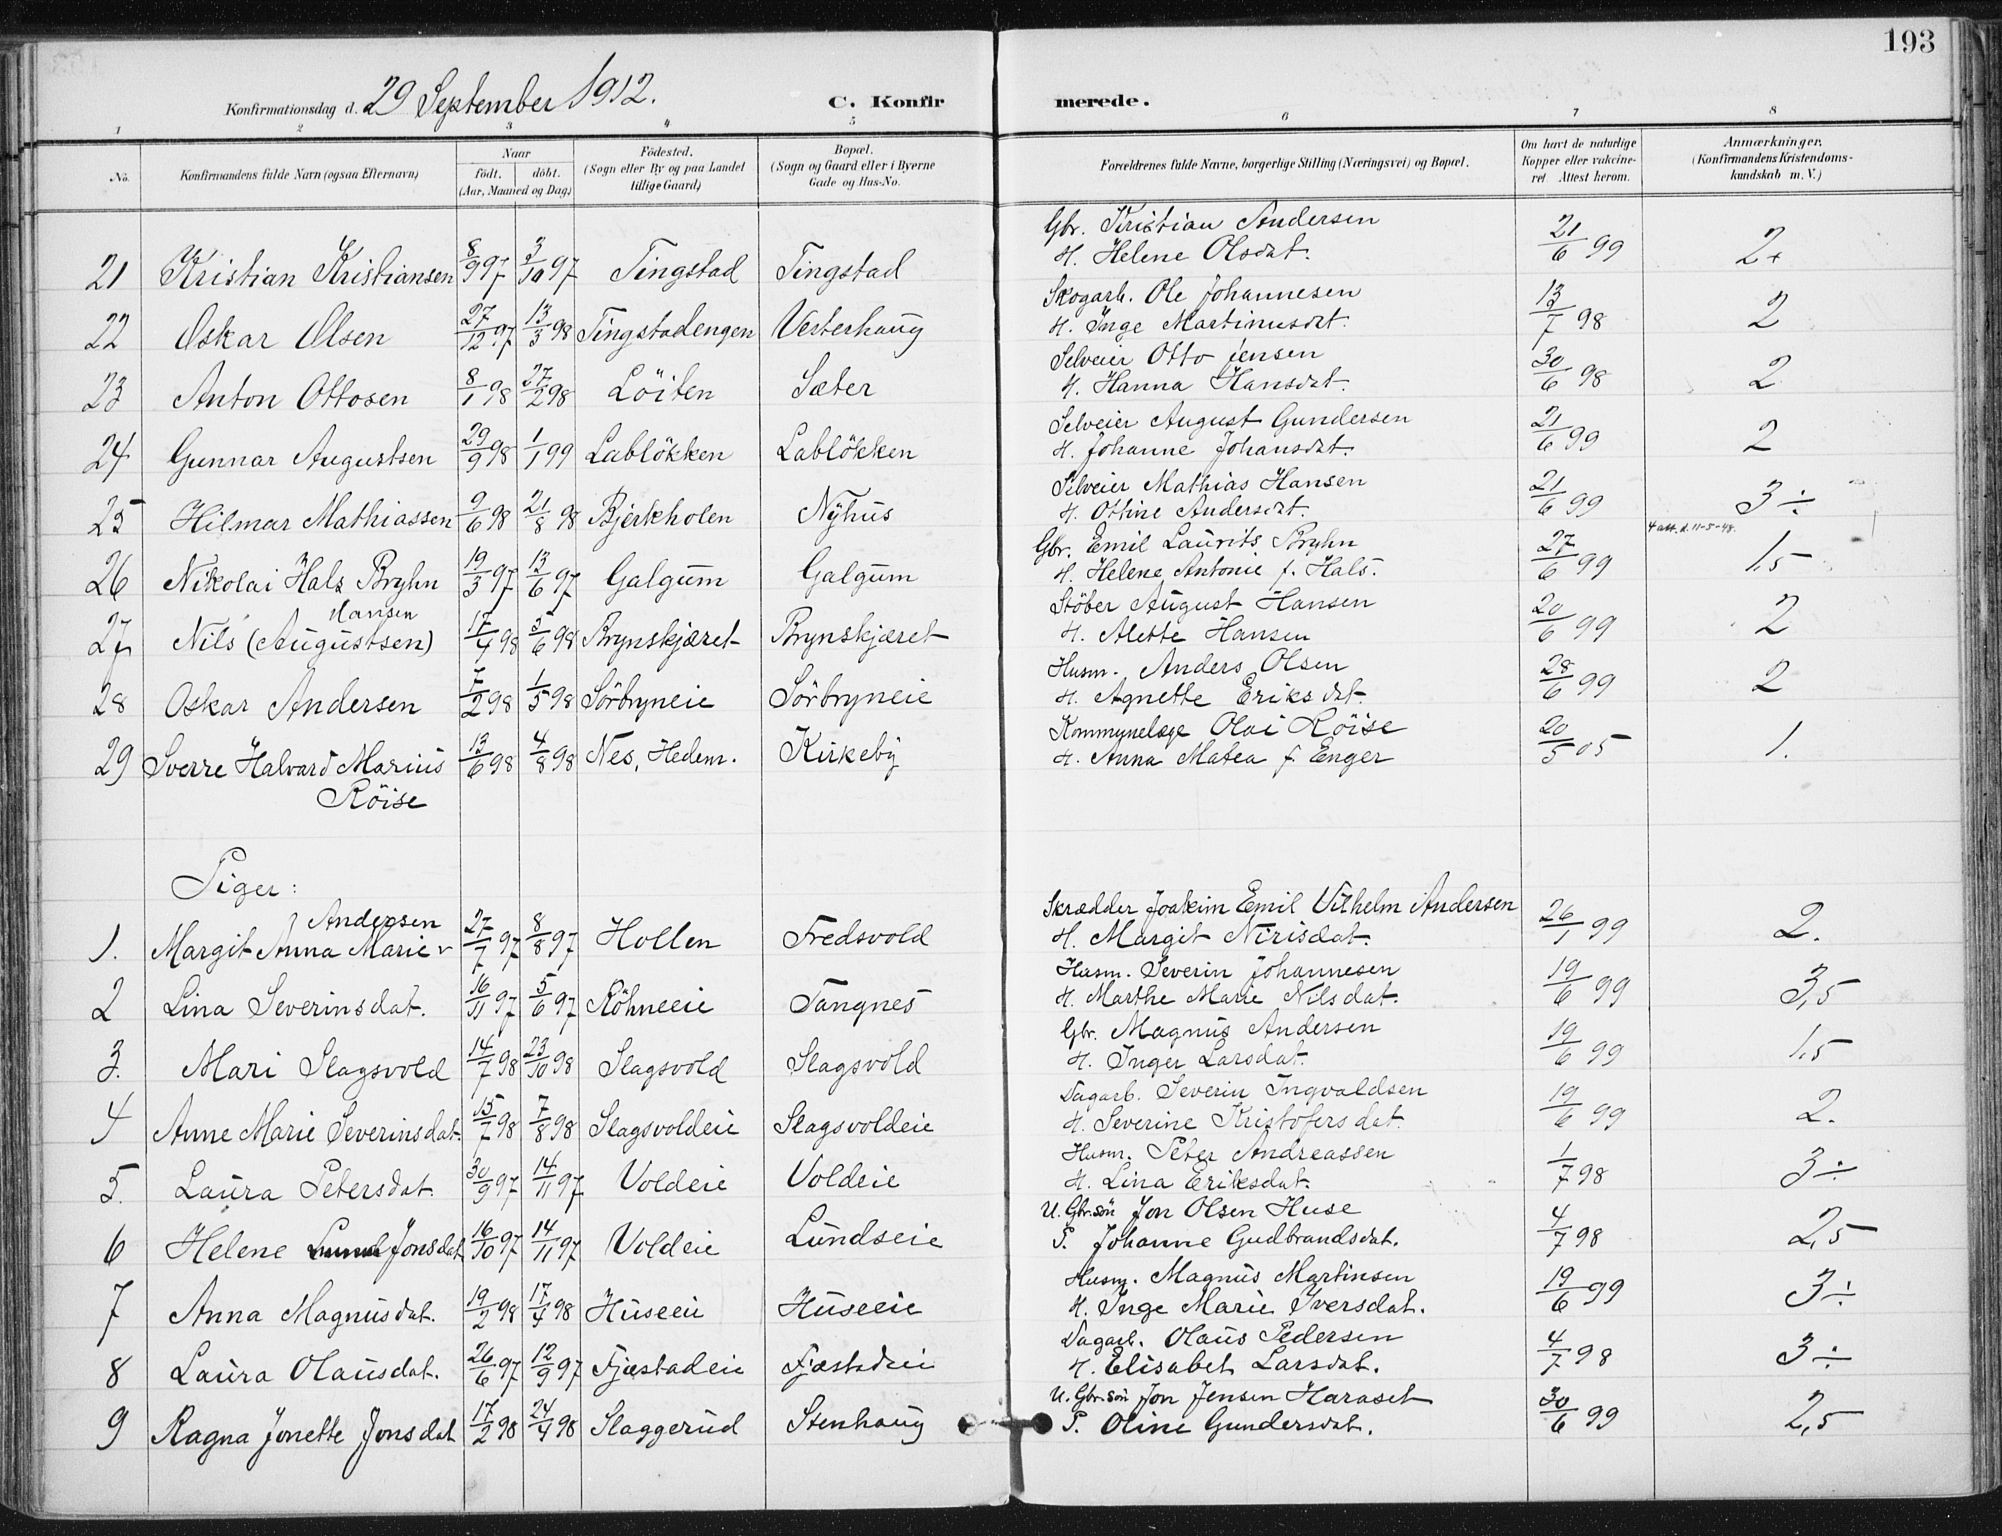 193
Konfirmationsdag d. 29 September 1912. C. Konfirmerede.
1 2 3 4 5 6 7 8
No. Konfirmandens fulde Navn (ogsaa Efternavn) Naar født. døbt. (Aar, Maaned og Dag) Fødested. (Sogn eller By og paa Landet tillige Gaard) Bopæl. (Sogn og Gaard eller i Byerne Gade og Hus-No. Forældrenes fulde Navne, borgerlige Stilling (Næringsvei) og Bopæl. Om havt de naturlige Kopper eller vakcineret. Attest herom. Anmærkninger. (Konfirmandens Kristendomskundskab m. V.)
Gbr. Kristian Andersen
21 Kristian Kristiansen 8/9 97 3/10 97 Tingstad Tingstad H. Helene Olsdat. 21/6 99 2+
Skogarb. Ole Johannesen
22 Oskar Olsen 27/12 97 13/3 98 Tingstadengen Vesterhaug H. Inge Martinusdat. 13/7 98 2
Selveier Otto Jensen
23 Anton Ottosen 8/1 98 27/2 98 Löiten Sæter H. Hanna Hansdat. 30/6 98 2
Selveier August Gundersen
24 Gunnar Augustsen 29/9 98 1/1 99 Lablökken Lablökken H. Johanne Johansdat. 21/6 99 2
Selveier Mathias Hansen
25 Hilmar Mathiassen 9/6 98 21/8 98 Bjerkholen Nyhus H. Ottine Andersdat. 21/6 99 3÷
4 att. d. 11-5-48.
Gbr. Emil Laurits Bryhn
26 Nikolai Hals Bryhn 19/3 97 13/6 97 Galgum Galgum H. Helene Antonie f. Hals. 27/6 99 1,5
Hansen
Stöber August Hansen
27 Nils (Augustsen) 17/4 98 5/6 98 Brynskjæret Brynskjæret H. Alette Hansen 20/6 99 2
Husm. Anders Olsen
28 Oskar Andersen 7/2 98 1/5 98 Sörbryneie Sörbryneie H. Agnette Eriksdat. 28/6 99 2
Kommunelæge Olai Röise
29 Sverre Halvard Marius 13/6 98 4/8 98 Nes, Hedem. Kirkeby H. Anna Matea f. Enger 20/5 05 1.
Röise
Piger:
Andersen
Skrædder Joakim Emil Vilhelm Andersen
1. Margit Anna Marie 27/7 97 8/8 97 Hollen Fredsvold H. Margit Nirisdat. 26/1 99 2.
Husm. Severin Johannesen
2 Lina Severinsdat. 16/11 97 5/6 97 Röhneeie Tangnes H. Marthe Marie Nilsdat. 19/6 99 3,5
Gbr. Magnus Andersen
3. Mari Slagsvold 14/7 98 23/10 98 Slagsvold Slagsvold H. Inger Larsdat. 19/6 99 1,5
Dagarb. Severin Ingvaldsen
4 Anne Marie Severinsdat. 15/7 98 7/8 98 Slagsvoldeie Slagsvoldeie H. Severine Kristofersdat. 19/6 99 2.
Husm. Peter Andreassen
5. Laura Petersdat. 30/9 97 14/11 97 Voldeie Voldeie H. Lina Eriksdat. 1/7 98 3÷
U. Gbr.sön Jon Olsen Huse
6 Helene Jonsdat 16/10 97 14/11 97 Voldeie Lundseie P. Johanne Gudbrandsdat. 4/7 98 2,5
Husm. Magnus Martinsen
7 Anna Magnusdat. 19/2 98 17/4 98 Huseeie Huseeie H. Inge Marie Iversdat. 19/6 99 3÷
Dagarb. Olaus Pedersen
8 Laura Olausdat. 26/6 97 12/9 97 Fjæstadeie Fjæstadeie H. Elisabet Larsdat. 4/7 98 3÷
U. Gbr.sön Jon Jensen Haraset
9 Ragna Jonette Jonsdat 17/2 98 24/4 98 Slaggerud Stenhaug P. Oline Gundersdat. 30/6 99 2,5